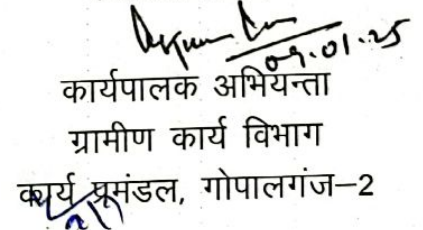 09.01.25
कार्यपालक अभियन्ता
ग्रामीण कार्य विभाग
कार्य प्रमंडल, गोपालगंज–2